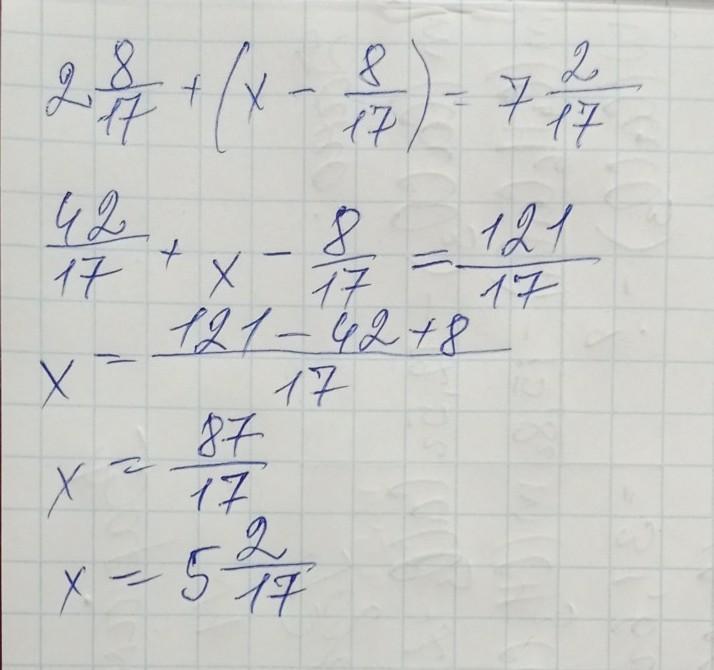 2 8/17 + (x - 8/17) = 7 2/17
42/17 + x - 8/17 = 121/17
x = (121 - 42 + 8)/17
x = 87/17
x = 5 2/17